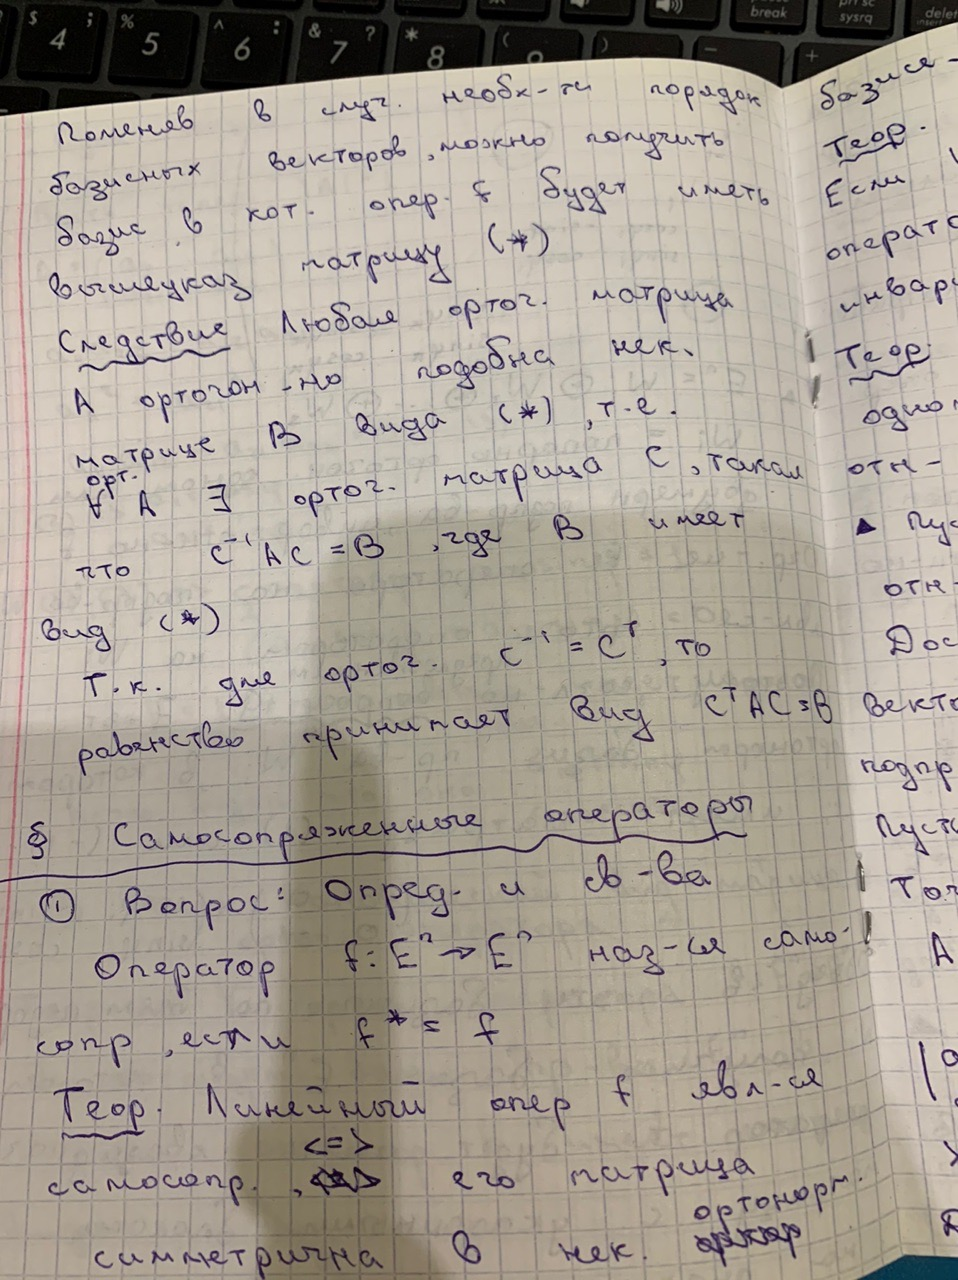 $ 4 ;
% 5
^ 6 :
& 7 ?
* 8
(
)
break
sysrq
delete
Поменяв в случ. необх-ти порядок
базисных векторов, можно получить
базис в кот. опер. f будет иметь
вышеуказ матрицу (*)
Следствие Любая ортог. матрица
A ортогон-но подобна нек.
матрице B вида (*), т.е.
орт.
∀ A ∃ ортог. матрица C, такая
что C⁻¹AC = B, где B имеет
вид (*)
Т.к. для ортог. C⁻¹ = Cᵀ, то
равенство принимает вид CᵀAC=B
§ Самосопряженные операторы
① Вопрос: Опред. и св-ва
Оператор f: Eⁿ → Eⁿ наз-ся само-
сопр, если f* = f
Теор. Линейный опер f явл-ся
<=>
самосопр., его матрица
ортонорм.
симметрична в нек.
базися-
Теор.
Если
операто
инвари
Теор.
одно
отн-
▲ Пус
отн-
Дос
векто
подпр
Пусть
Тог
A